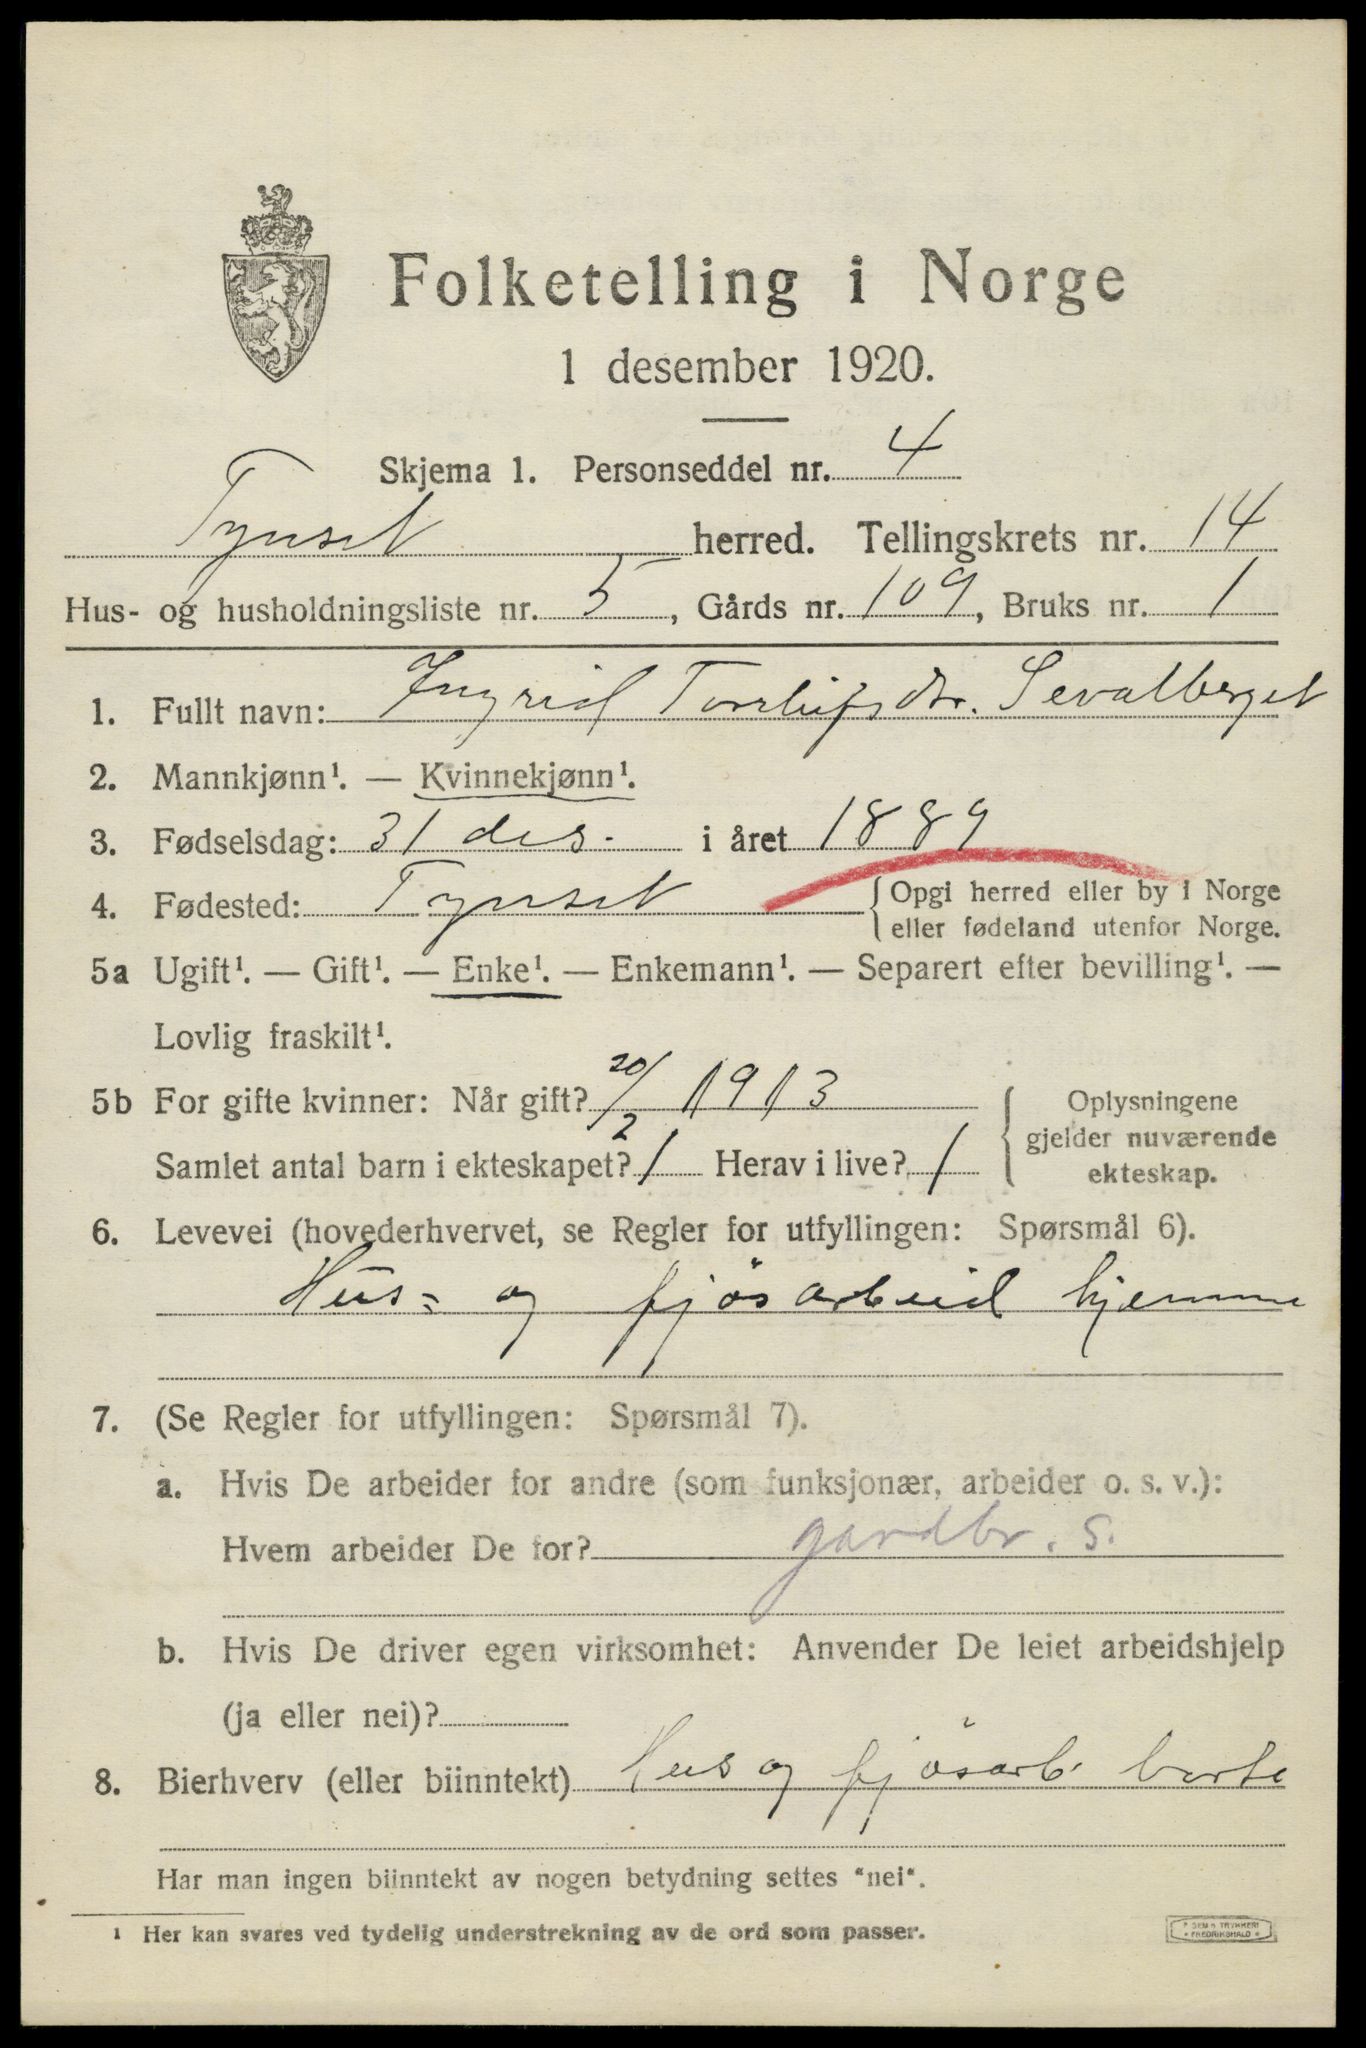 Folketelling i Norge
1 desember 1920.
Skjema 1. Personseddel nr. 4
Tynset herred. Tellingskrets nr. 14
Hus- og husholdningsliste nr. 5, Gårds nr. 109, Bruks nr. 1
1. Fullt navn: Ingrid Torleifsdtr. Sevalberget
2. Mannkjønn¹. — Kvinnekjønn¹.
3. Fødselsdag: 31 des. i året 1889
4. Fødested: Tynset { Opgi herred eller by i Norge
eller fødeland utenfor Norge.
5a Ugift¹. — Gift¹. — Enke¹. — Enkemann¹. — Separert efter bevilling¹. —
Lovlig fraskilt¹.
5b For gifte kvinner: Når gift? 20/2 1913
Samlet antal barn i ekteskapet? 1 Herav i live? 1
{ Oplysningene
gjelder nuværende
ekteskap.
6. Levevei (hovederhvervet, se Regler for utfyllingen: Spørsmål 6).
Hus= og fjösarbeid hjemme
7. (Se Regler for utfyllingen: Spørsmål 7).
a. Hvis De arbeider for andre (som funksjonær, arbeider o. s. v.):
Hvem arbeider De for? gardbr. s.
b. Hvis De driver egen virksomhet: Anvender De leiet arbeidshjelp
(ja eller nei)?
8. Bierhverv (eller biinntekt) Hus og fjösarb. borte
Har man ingen biinntekt av nogen betydning settes "nei".
¹ Her kan svares ved tydelig understrekning av de ord som passer.
* SEM & TRYKKERI
* FREDRIKSHALD *